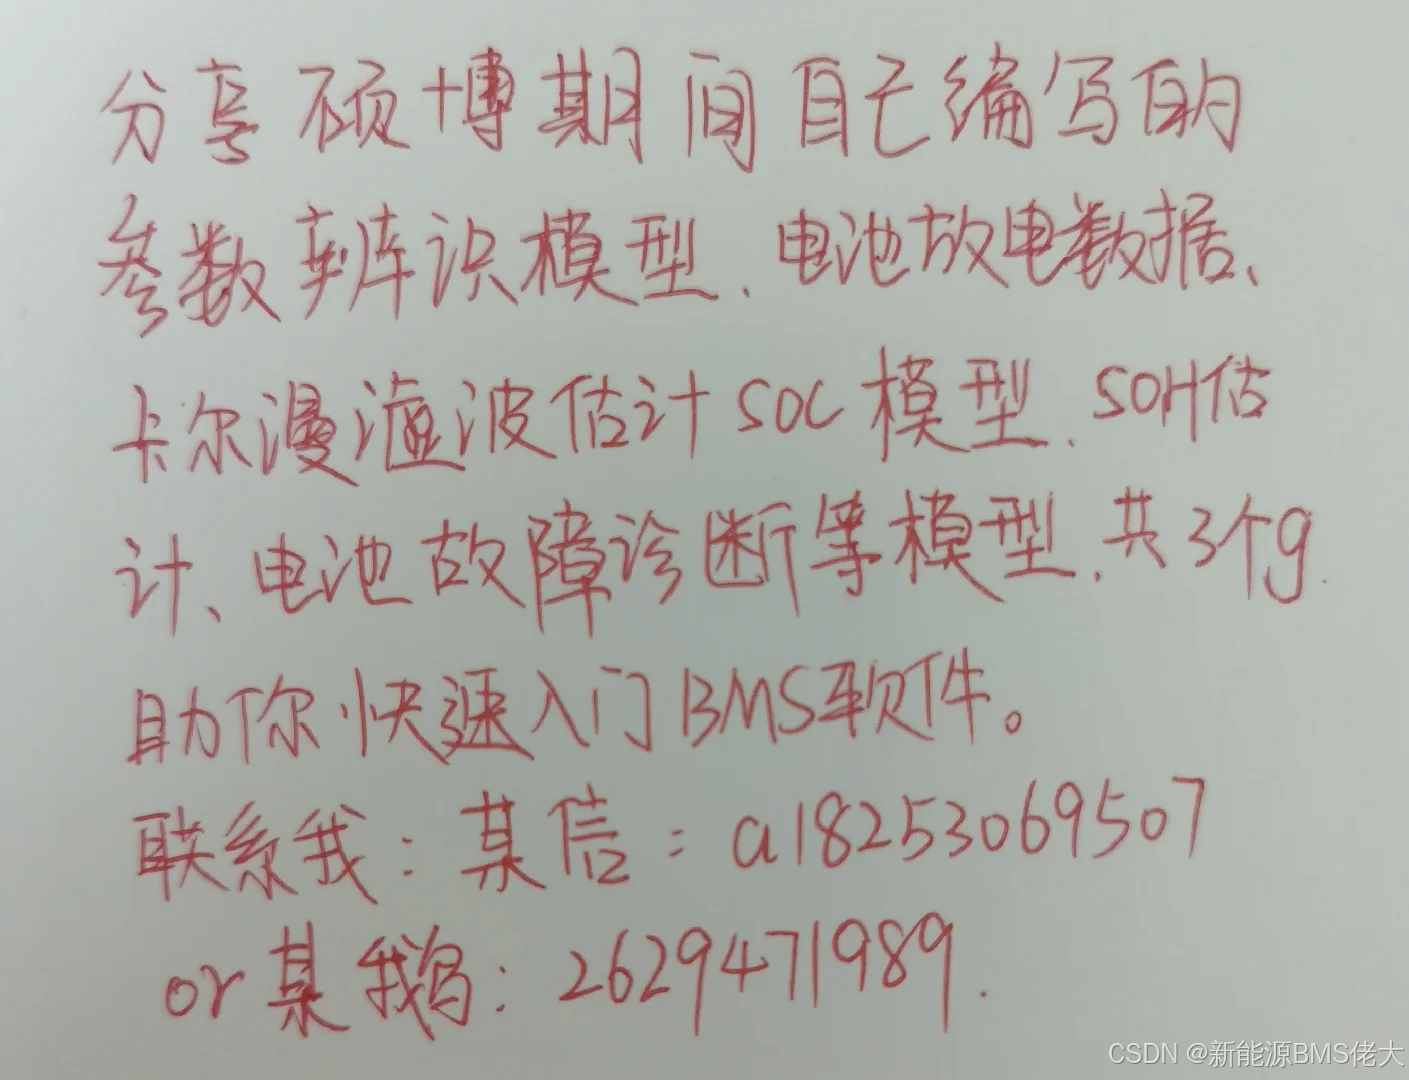 分享硕博期间自己编写的
参数辨识模型、电池放电数据、
卡尔漫滤波估计SOC模型、SOH估
计、电池故障诊断等模型,共3个g.
助你快速入门BMS软件。
联系我:某信:a18253069507
or某鹅:2629471989.
CSDN @新能源BMS佬大